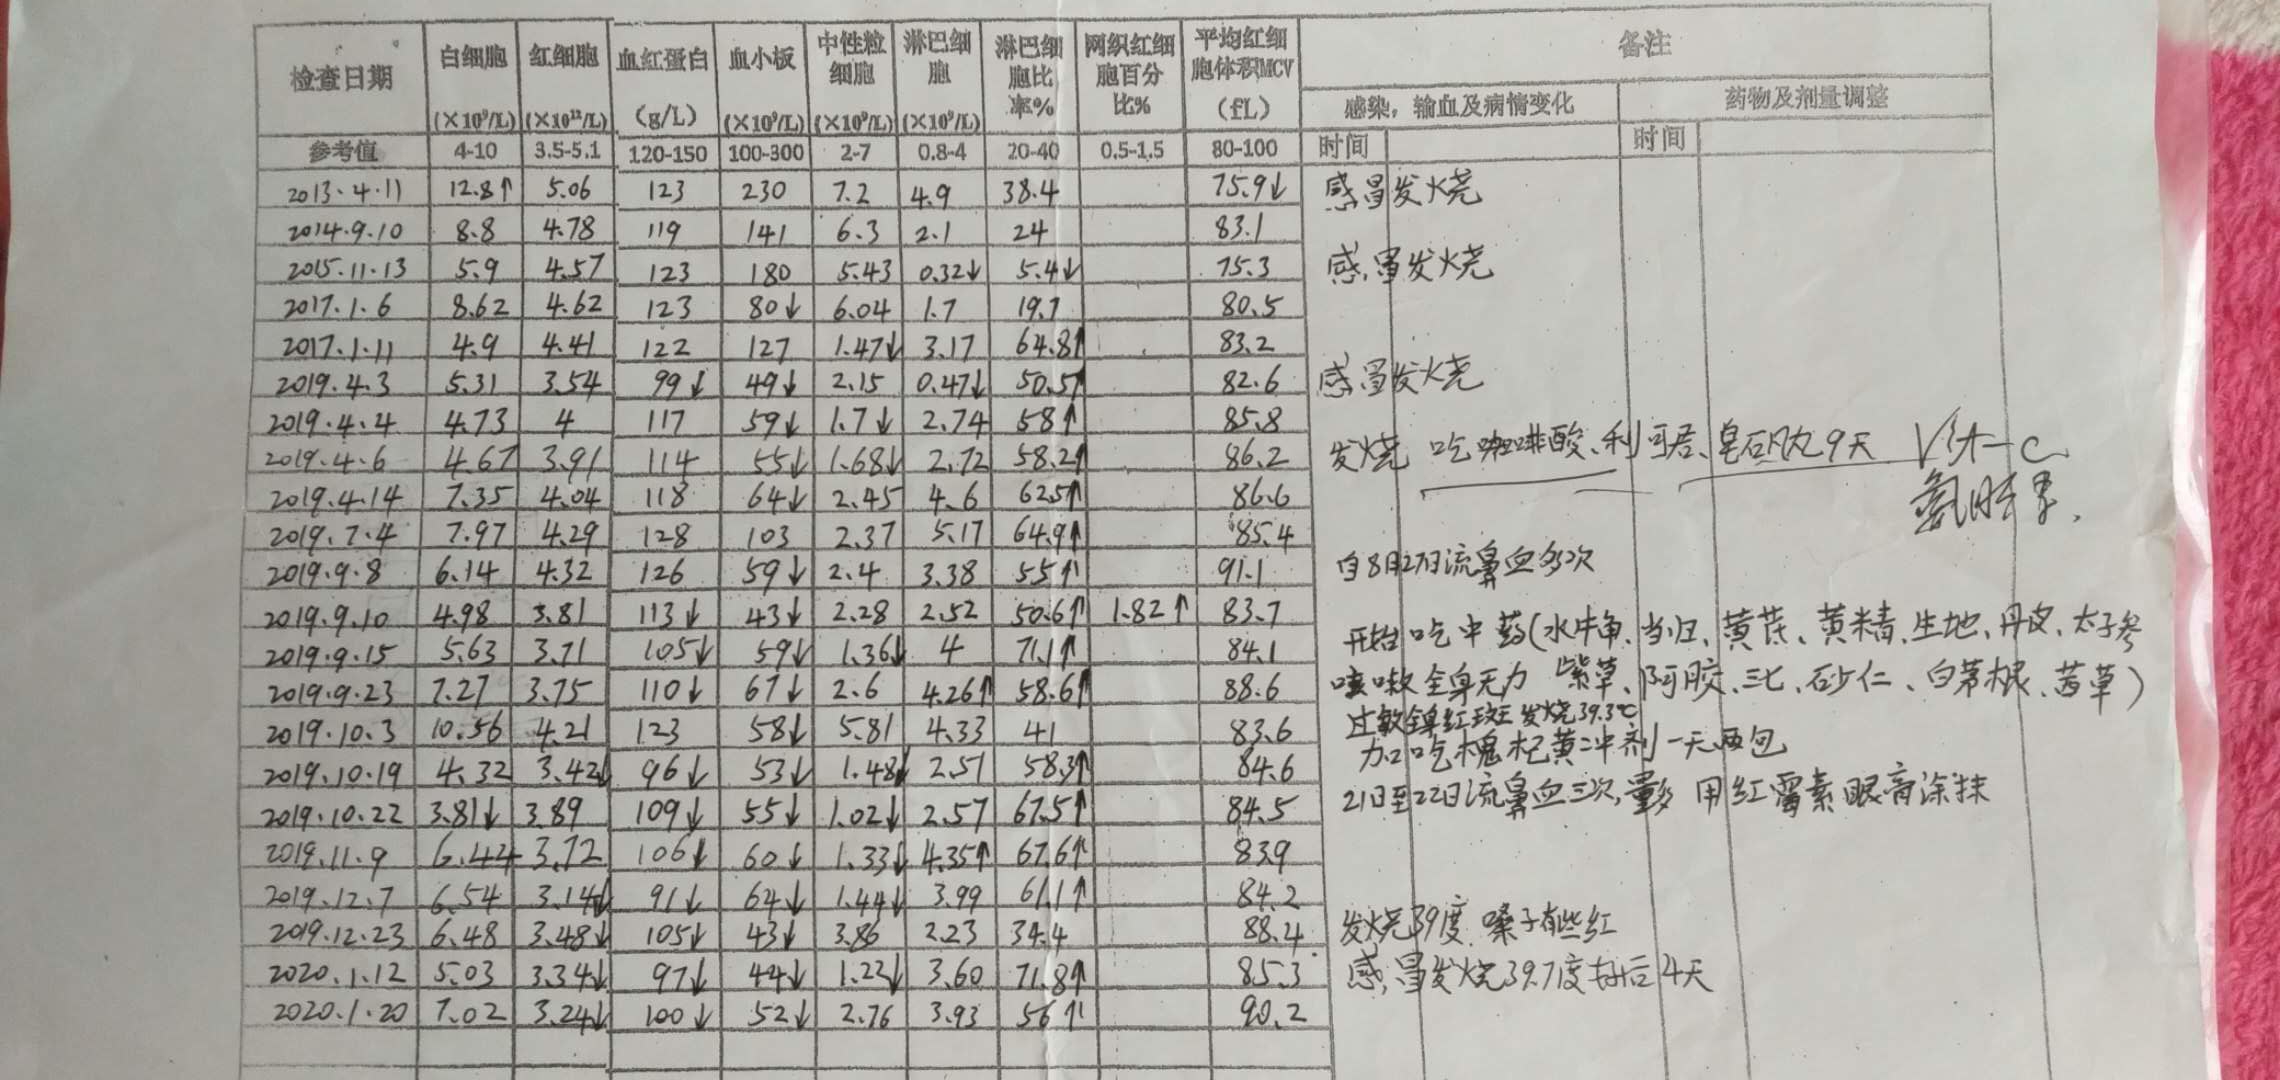 检查日期 白细胞 (×10⁹/L) 红细胞 (×10¹²/L) 血红蛋白 (g/L) 血小板 (×10⁹/L) 中性粒细胞 (×10⁹/L) 淋巴细胞 (×10⁹/L) 淋巴细胞比率% 网织红细胞百分比% 平均红细胞体积MCV (fL) 备注
感染，输血及病情变化 药物及剂量调整
参考值 4-10 3.5-5.1 120-150 100-300 2-7 0.8-4 20-40 0.5-1.5 80-100 时间 时间
2013.4.11 12.8↑ 5.06 123 230 7.2 4.9 38.4 75.9↓ 感冒发烧
2014.9.10 8.8 4.78 119 141 6.3 2.1 24 83.1
2015.11.13 5.9 4.57 123 180 5.43 0.32↓ 5.4↓ 75.3 感冒发烧
2017.1.6 8.62 4.62 123 80↓ 6.04 1.7 19.7 80.5
2017.1.11 4.9 4.41 122 127 1.47↓ 3.17 64.8↑ 83.2
2019.4.3 5.31 3.54 99↓ 49↓ 2.15 0.47↓ 50.5↑ 82.6 感冒发烧
2019.4.4 4.73 4 117 59↓ 1.7↓ 2.74 58↑ 85.8
2019.4.6 4.67 3.91 114 55↓ 1.68↓ 2.72 58.2↑ 86.2 发烧 吃咖啡酸、利可君、皂矾丸9天
2019.4.14 7.35 4.04 118 64↓ 2.45 4.6 62.5↑ 86.6
2019.7.4 7.97 4.29 128 103 2.37 5.17 64.9↑ 85.4
2019.9.8 6.14 4.32 126 59↓ 2.4 3.38 55↑ 91.1 自8月27日流鼻血多次
2019.9.10 4.98 3.81 113↓ 43↓ 2.28 2.52 50.6↑ 1.82↑ 83.7 开始吃中药(水牛角、当归、黄芪、黄精、生地、丹皮、太子参
2019.9.15 5.63 3.71 105↓ 59↓ 1.36↓ 4 71.1↑ 84.1
2019.9.23 7.27 3.75 110↓ 67↓ 2.6 4.26↑ 58.6↑ 88.6 咳嗽全身无力 紫草、阿胶、三七、砂仁、白茅根、茜草)
2019.10.3 10.56 4.21 123 58↓ 5.81 4.33 41 83.6 过敏全身红斑 发烧39.3℃
加吃槐杞黄冲剂一天两包
2019.10.19 4.32 3.42↓ 96↓ 53↓ 1.48↓ 2.51 58.3↑ 84.6
2019.10.22 3.81↓ 3.89 109↓ 55↓ 1.02↓ 2.57 67.5↑ 84.5 21日至22日流鼻血三次,量多 用红霉素眼膏涂抹
2019.11.9 6.44 3.72 106↓ 60↓ 1.33↓ 4.35↑ 67.6↑ 83.9
2019.12.7 6.54 3.14↓ 91↓ 64↓ 1.44↓ 3.99 61.1↑ 84.2
2019.12.23 6.48 3.48↓ 105↓ 43↓ 3.86 2.23 34.4 88.4 发烧39度.嗓子有些红
2020.1.12 5.03 3.34↓ 97↓ 44↓ 1.22↓ 3.60 71.8↑ 85.3 感冒发烧39.7度 后4天
2020.1.20 7.02 3.24↓ 100↓ 52↓ 2.76 3.93 56↑ 90.2